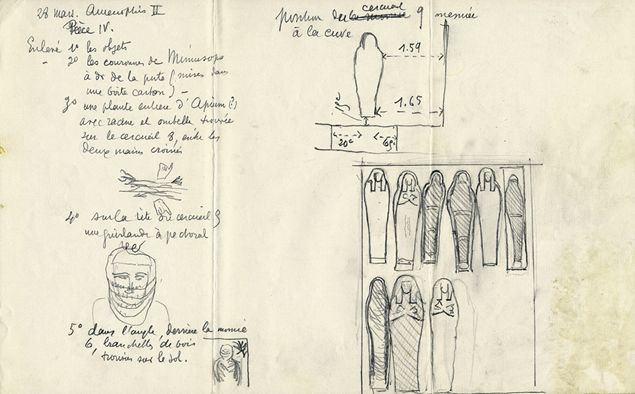 28 mars. Amenophis II
Pièce IV.
Enlevé 1° les objets
- 2° les couronnes de Mimusops
à dr de la porte (mises dans
une boîte carton) -
3° une plante entière d'Apium (?)
avec racine et ombelle trouvée
sur le cercueil 8, entre les
deux mains croisées
4° sur la tête du cercueil 9
une guirlande à pectoral
5° dans l'angle, derrière la momie
6, branchettes de bois
trouvées sur le sol.
position de la momie cercueil 9
à la cuve
1.59
1.65
20c